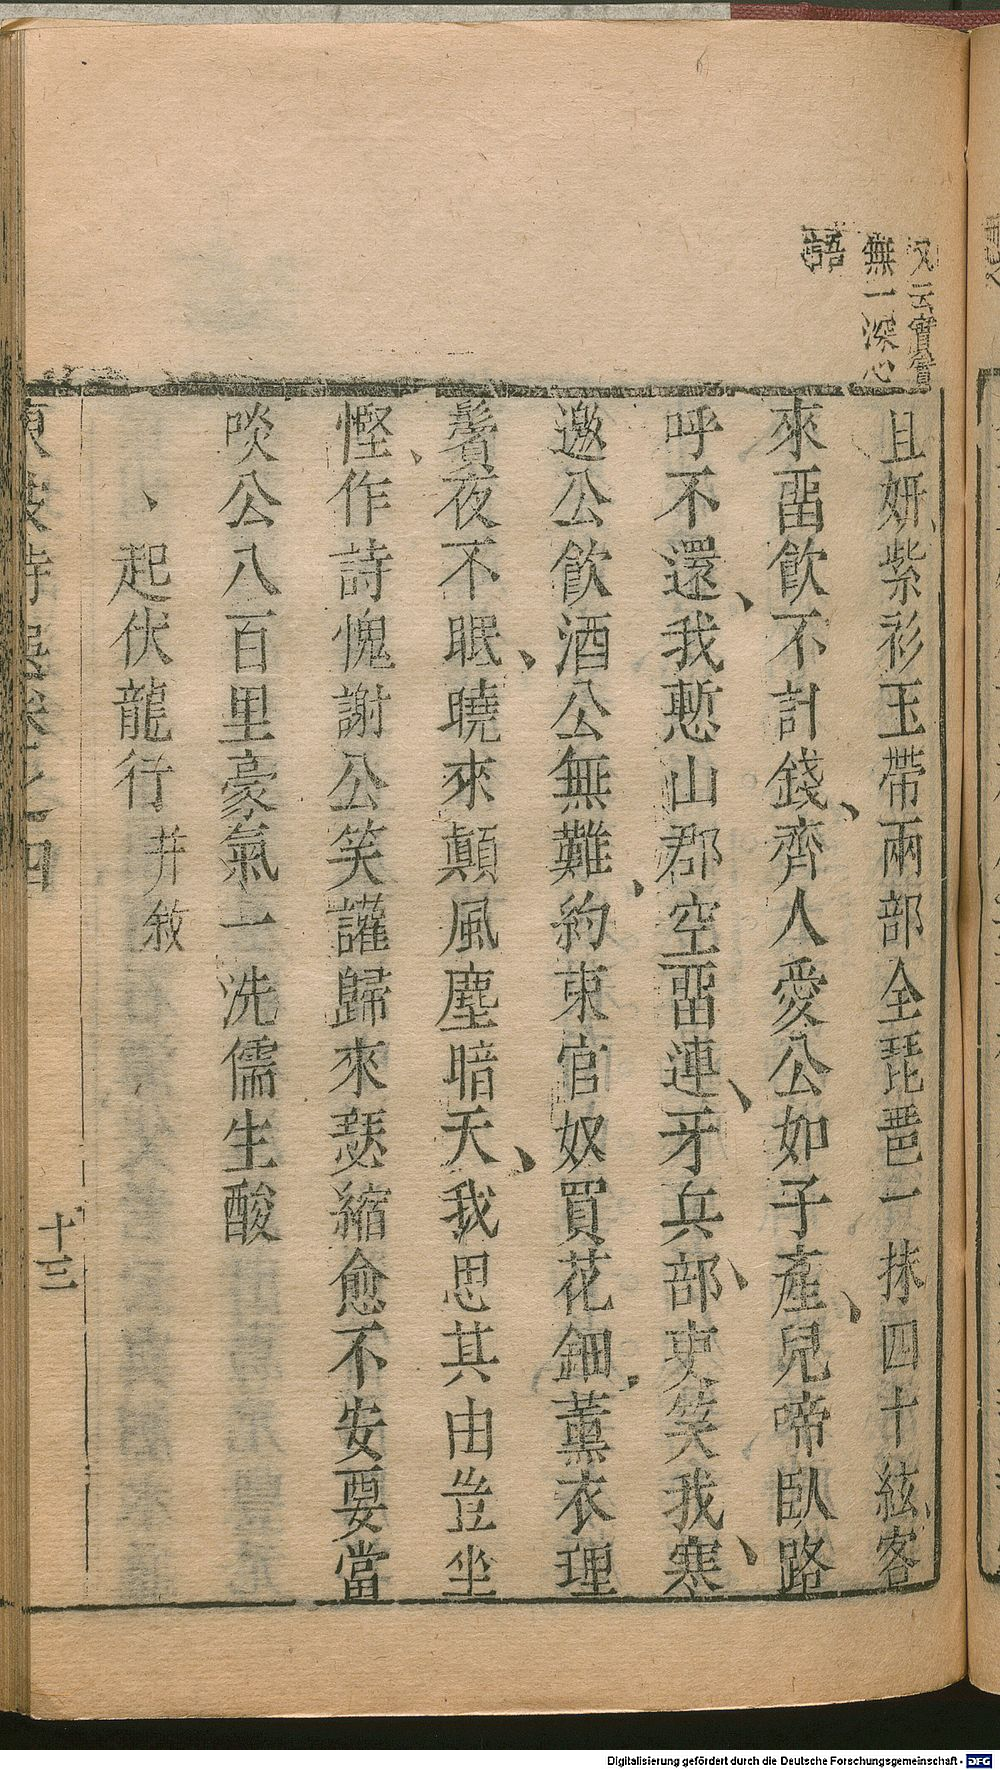 又云實實
無一深心
語
且妍紫衫玉帶兩部全琵琶一抹四十絃客
來畱飲不計錢齊人愛公如子產兒啼臥路
呼不還我慙山郡空畱連牙兵部吏笑我寒
邀公飲酒公無難約束官奴買花鈿薰衣理
鬢夜不眠曉來顛風塵暗天我思其由豈坐
慳作詩愧謝公笑讙歸來瑟縮愈不安要當
啖公八百里豪氣一洗儒生酸
起伏龍行并敘
東坡詩選卷之四
十三
Digitalisierung gefördert durch die Deutsche Forschungsgemeinschaft - DFG